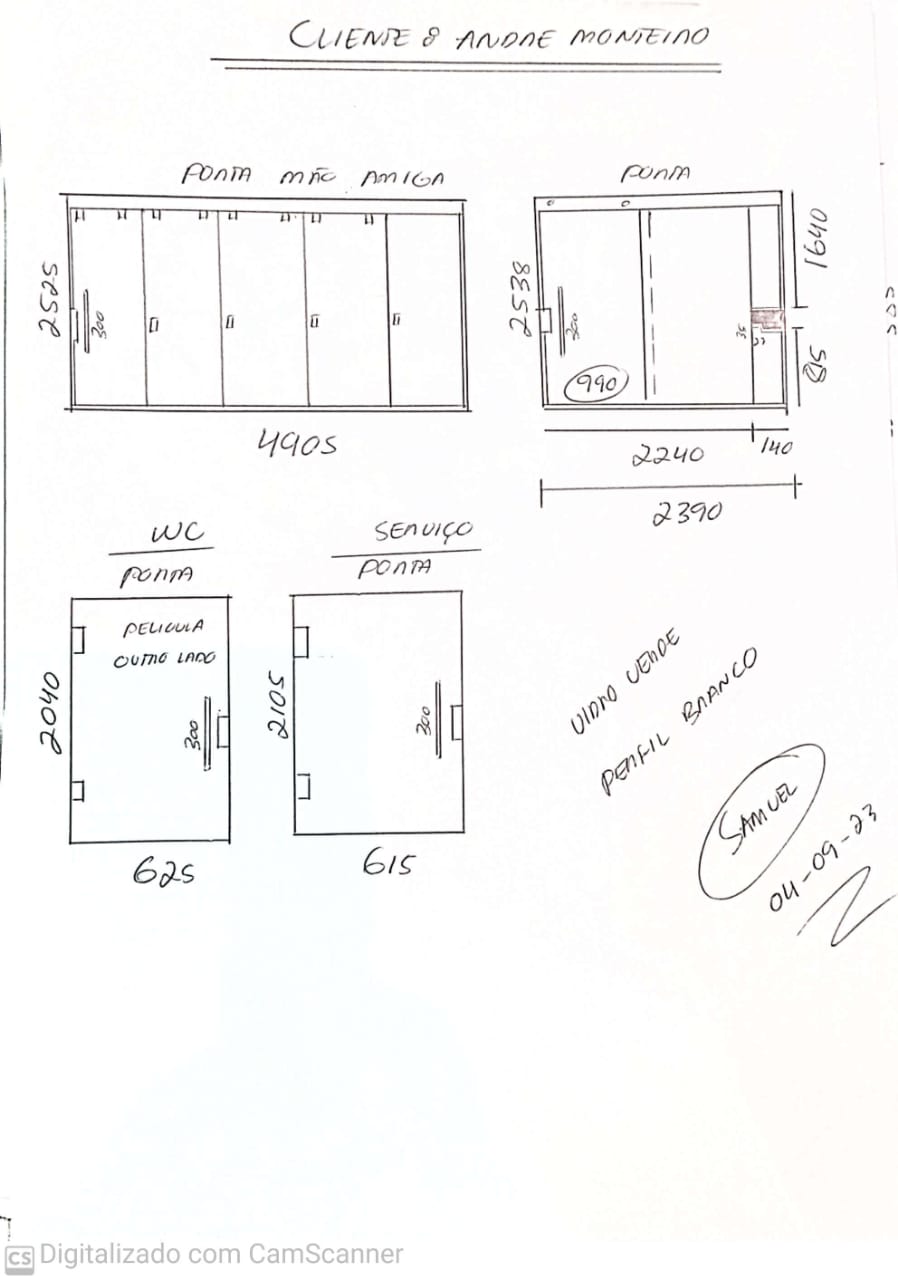 CLIENTE : ANDRE MONTEIRO
PORTA MÃO AMIGA
2525
300
4905
PORTA
2538
300
990
1640
35
815
2240
140
2390
WC
PORTA
PELICULA
OUTRO LADO
2040
300
625
SERVIÇO
PORTA
2105
300
615
VIDRO VERDE
PERFIL BRANCO
SAMUEL
04-09-23
CS Digitalizado com CamScanner